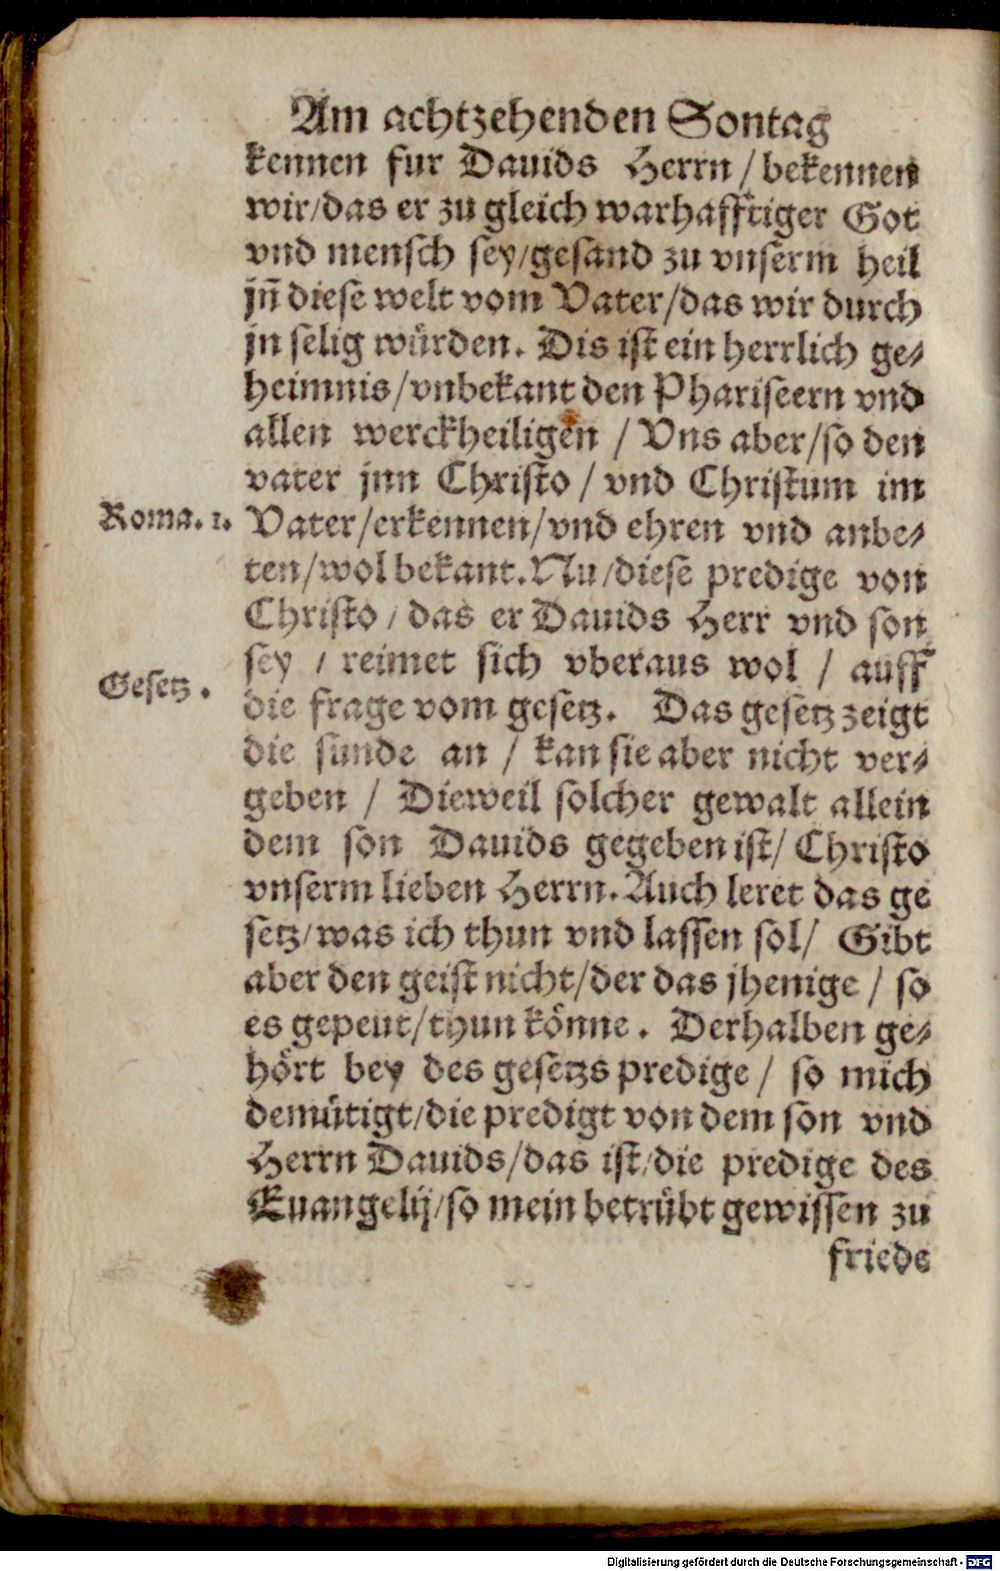 Am achtzehenden Sontag
kennen fur Dauids Herrn / bekennen
wir/das er zu gleich warhafftiger Got
vnd mensch sey/gesand zu vnserm heil
jñ diese welt vom Vater/das wir durch
jn selig würden. Dis ist ein herrlich ge⸗
heimnis/vnbekant den Phariseern vnd
allen werckheiligen / Vns aber/so den
vater jnn Christo / vnd Christum im
Roma. 1. Vater/erkennen/vnd ehren vnd anbe⸗
ten/wol bekant. Nu/diese predige von
Christo / das er Dauids Herr vnd son
sey / reimet sich vberaus wol / auff
Gesetz .
die frage vom gesetz. Das gesetz zeigt
die sunde an / kan sie aber nicht ver⸗
geben / Dieweil solcher gewalt allein
dem son Dauids gegeben ist/ Christo
vnserm lieben Herrn. Auch leret das ge
setz/was ich thun vnd lassen sol/ Gibt
aber den geist nicht/der das jhenige / so
es gepeut/thun könne . Derhalben ge⸗
hört bey des gesetzs predige / so mich
demütigt/die predigt von dem son vnd
Herrn Dauids/das ist/die predige des
Euangelij/so mein betrübt gewissen zu
friede
Digitalisierung gefördert durch die Deutsche Forschungsgemeinschaft - DFG